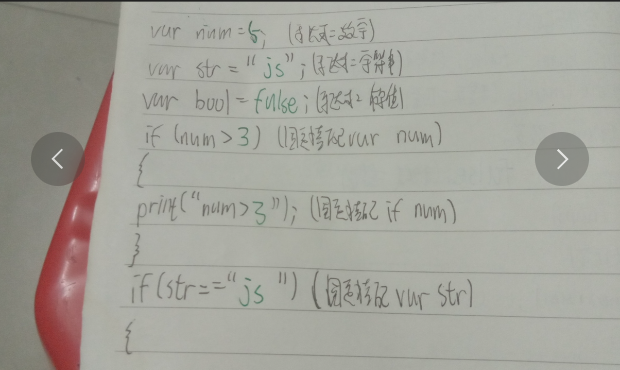 var num=5; (形式=数字)
var str = "js"; (形式=字符串)
var bool=false; (形式=
if (num>3) (固定搭配var num)
{
print("num>3"); (固定搭配 if num)
}
if(str=="js ") (固定搭配 var str)
{